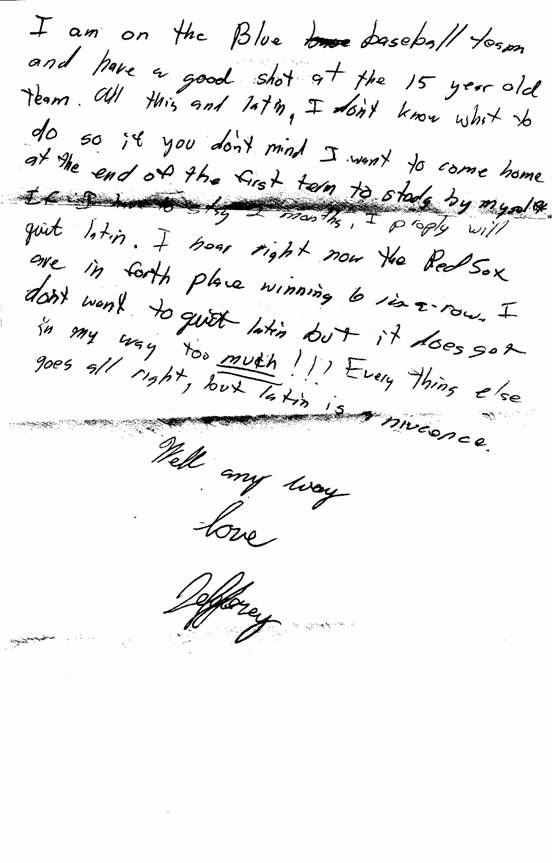 I am on the Blue baseball team
and have a good shot at the 15 year old
team. All this and latin, I don't know whit to
do so if you don't mind I want to come home
at the end of the first term to study by myself.
If I have to stay 2 months, I proply will
quit latin. I hear right now the Red Sox
are in forth place winning 6 in a row. I
don't want to quiet latin but it does get
in my way too much!!! Every thing else
goes all right, but latin is a nivcence.
Well any way
love
Jefforey